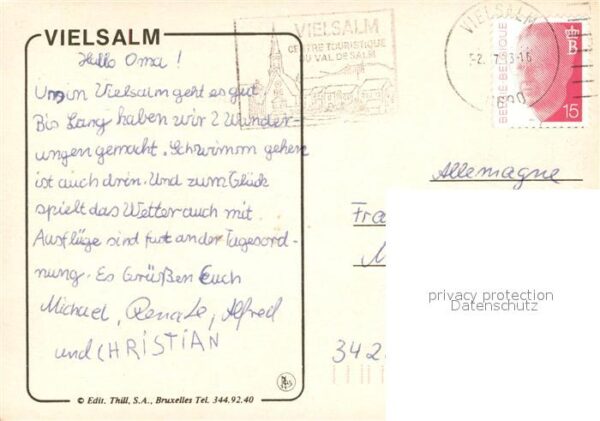 VIELSALM
Hallo Oma!
Uns in Vielsalm geht es gut
Bis Lang haben wir 2 Wander-
ungen gemacht. Schwimm gehen
ist auch drin. Und zum Glück
spielt das Wetter auch mit.
Ausflüge sind fast an der Tagesord-
nung. Es Grüßen Euch
Michael, Renate, Alfred
und CHRISTIAN
© Edit. Thill, S.A., Bruxelles Tel. 344.92.40
VIELSALM
CENTRE TOURISTIQUE
DU VAL DE SALM
VIELSALM
BELGIE-BELGIQUE
B
15
Allemagne
Fra
privacy protection
Datenschutz
342